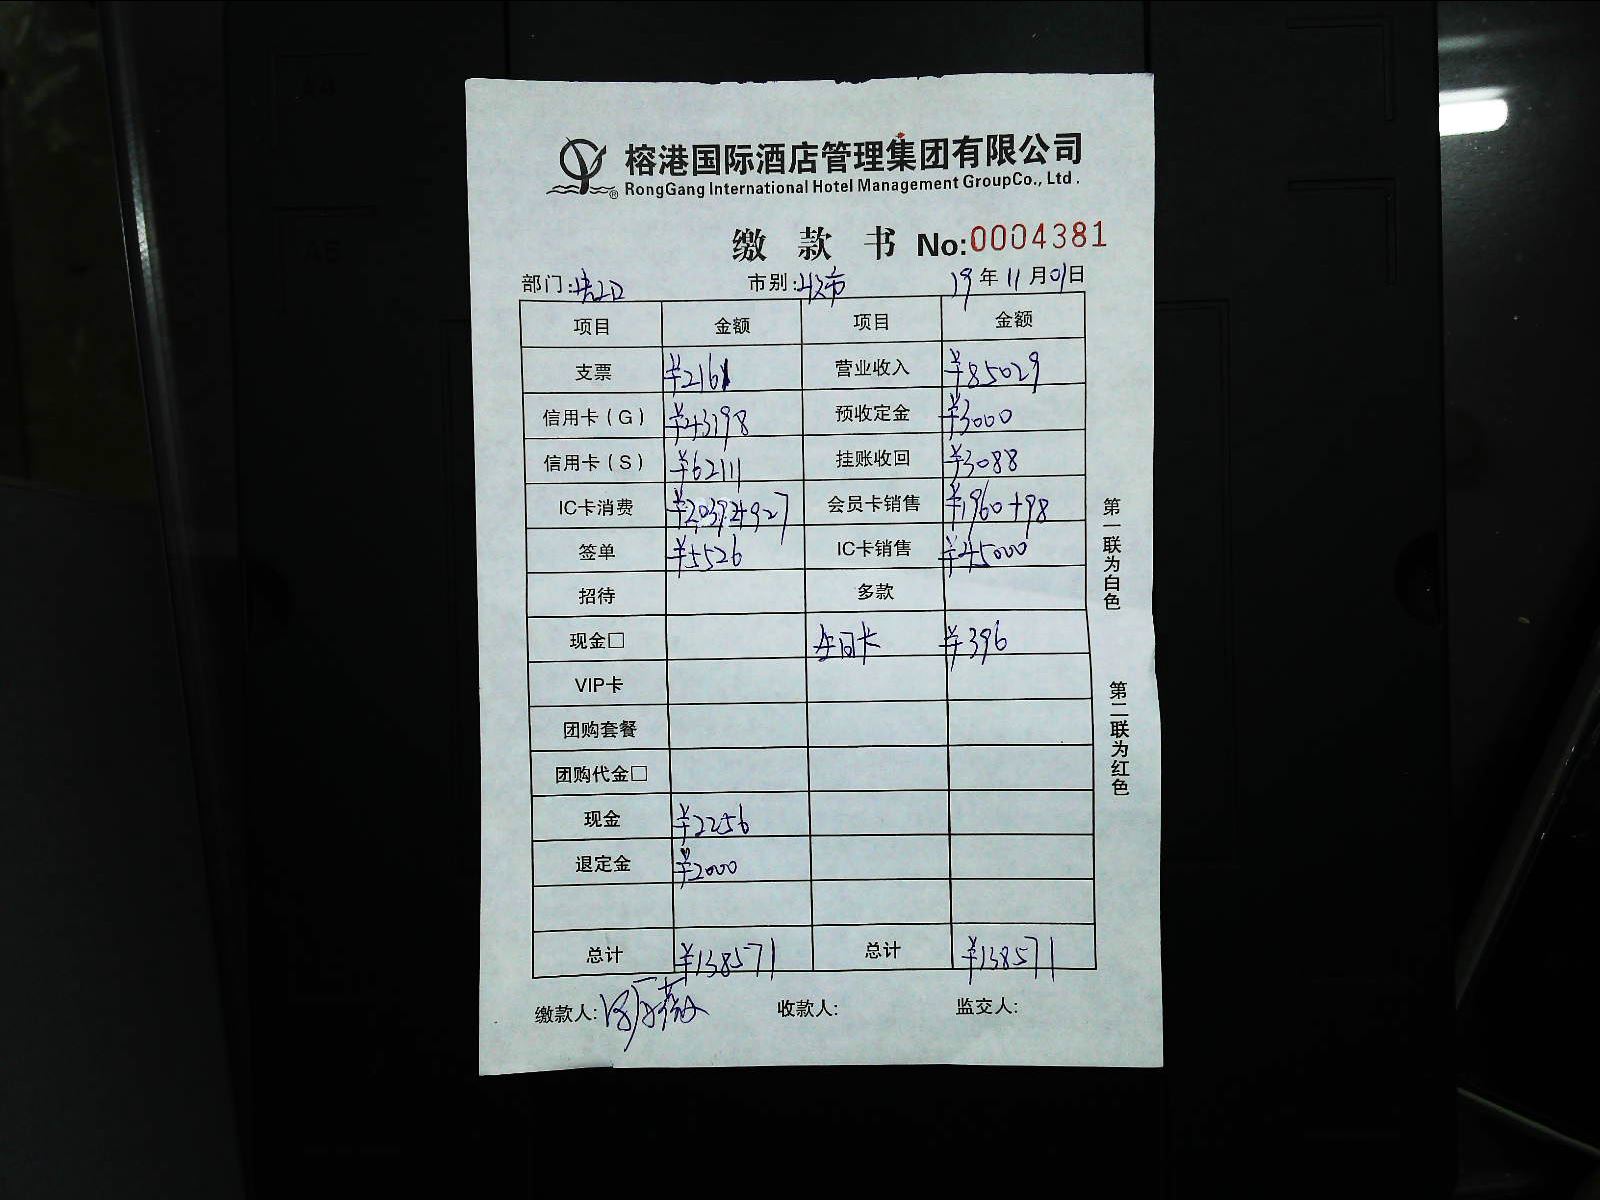 榕港国际酒店管理集团有限公司
RongGang International Hotel Management GroupCo., Ltd .
缴款书 No:0004381
部门: 市别: 19年11月01日
项目 金额 项目 金额
支票 ¥2161 营业收入 ¥85029
信用卡(G) ¥43198 预收定金 ¥3000
信用卡(S) ¥62111 挂账收回 ¥3088
IC卡消费 ¥20392+927 会员卡销售 ¥1960+98
签单 ¥5526 IC卡销售 ¥45000
招待 多款
现金□ 生日卡 ¥396
VIP卡
团购套餐
团购代金□
现金 ¥2256
退定金 ¥2000
总计 ¥138571 总计 ¥138571
缴款人: 收款人: 监交人:
第一联为白色
第二联为红色